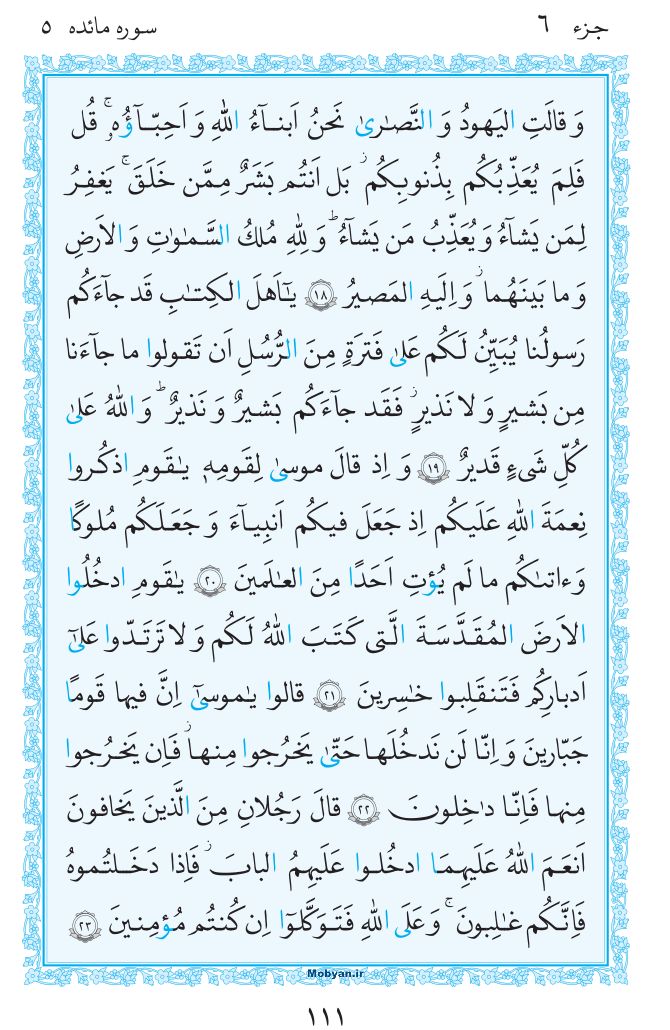 جزء ٦
سوره مائده ٥
وَ قالَتِ اليَهودُ وَ النَّصٰرىٰ نَحنُ اَبنـٰٓؤُا۟ اللهِ وَ اَحِبّـٰٓؤُهٗ ۚ قُل
فَلِمَ يُعَذِّبُكُم بِذُنوبِكُم ۖ بَل اَنتُم بَشَرٌ مِمَّن خَلَقَ ۚ يَغفِرُ
لِمَن يَشآءُ وَ يُعَذِّبُ مَن يَشآءُ ۚ وَ لِلّٰهِ مُلكُ السَّمـٰوٰتِ وَ الاَرضِ
وَ ما بَينَهُما ۖ وَ اِلَيهِ المَصيرُ ١٨ يـٰٓاَهلَ الكِتـٰبِ قَد جآءَكُم
رَسولُنا يُبَيِّنُ لَكُم عَلىٰ فَترَةٍ مِنَ الرُّسُلِ اَن تَقولوا ما جآءَنا
مِن بَشيرٍ وَ لا نَذيرٍ ۖ فَقَد جآءَكُم بَشيرٌ وَ نَذيرٌ ۗ وَ اللهُ عَلىٰ
كُلِّ شَىءٍ قَديرٌ ١٩ وَ اِذ قالَ موسىٰ لِقَومِهٖ يـٰقَومِ اذكُروا
نِعمَةَ اللهِ عَلَيكُم اِذ جَعَلَ فيكُم اَنبِيـآءَ وَ جَعَلَكُم مُلوكًا
وَ ءاتىٰكُم ما لَم يُؤتِ اَحَدًا مِنَ العـٰلَمينَ ٢٠ يـٰقَومِ ادخُلُوا
الاَرضَ المُقَدَّسَةَ الَّتى كَتَبَ اللهُ لَكُم وَ لا تَرتَدّوا عَلىٰٓ
اَدبارِكُم فَتَنقَلِبوا خـٰسِرينَ ٢١ قالوا يـٰموسىٰٓ اِنَّ فيها قَومًا
جَبّارينَ وَ اِنّا لَن نَدخُلَها حَتّىٰ يَخرُجوا مِنها ۖ فَاِن يَخرُجوا
مِنها فَاِنّا دٰخِلونَ ٢٢ قالَ رَجُلانِ مِنَ الَّذينَ يَخافونَ
اَنعَمَ اللهُ عَلَيهِمَا ادخُلوا عَلَيهِمُ البابَ ۖ فَاِذا دَخَلتُموهُ
فَاِنَّكُم غـٰلِبونَ ۚ وَ عَلَى اللهِ فَتَوَكَّلوٓا اِن كُنتُم مُؤمِنينَ ٢٣
Mobyan.ir
١١١